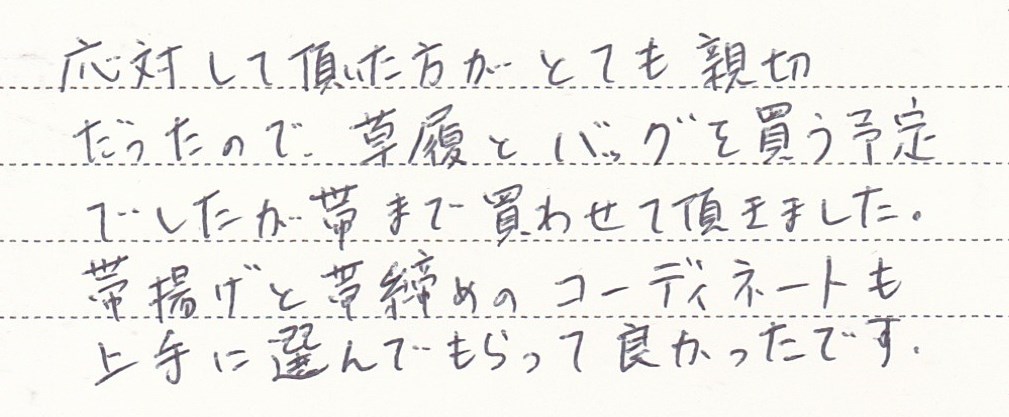 応対して頂いた方がとても親切
だったので、草履とバッグを買う予定
でしたが帯まで買わせて頂きました。
帯揚げと帯締めのコーディネートも
上手に選んでもらって良かったです。